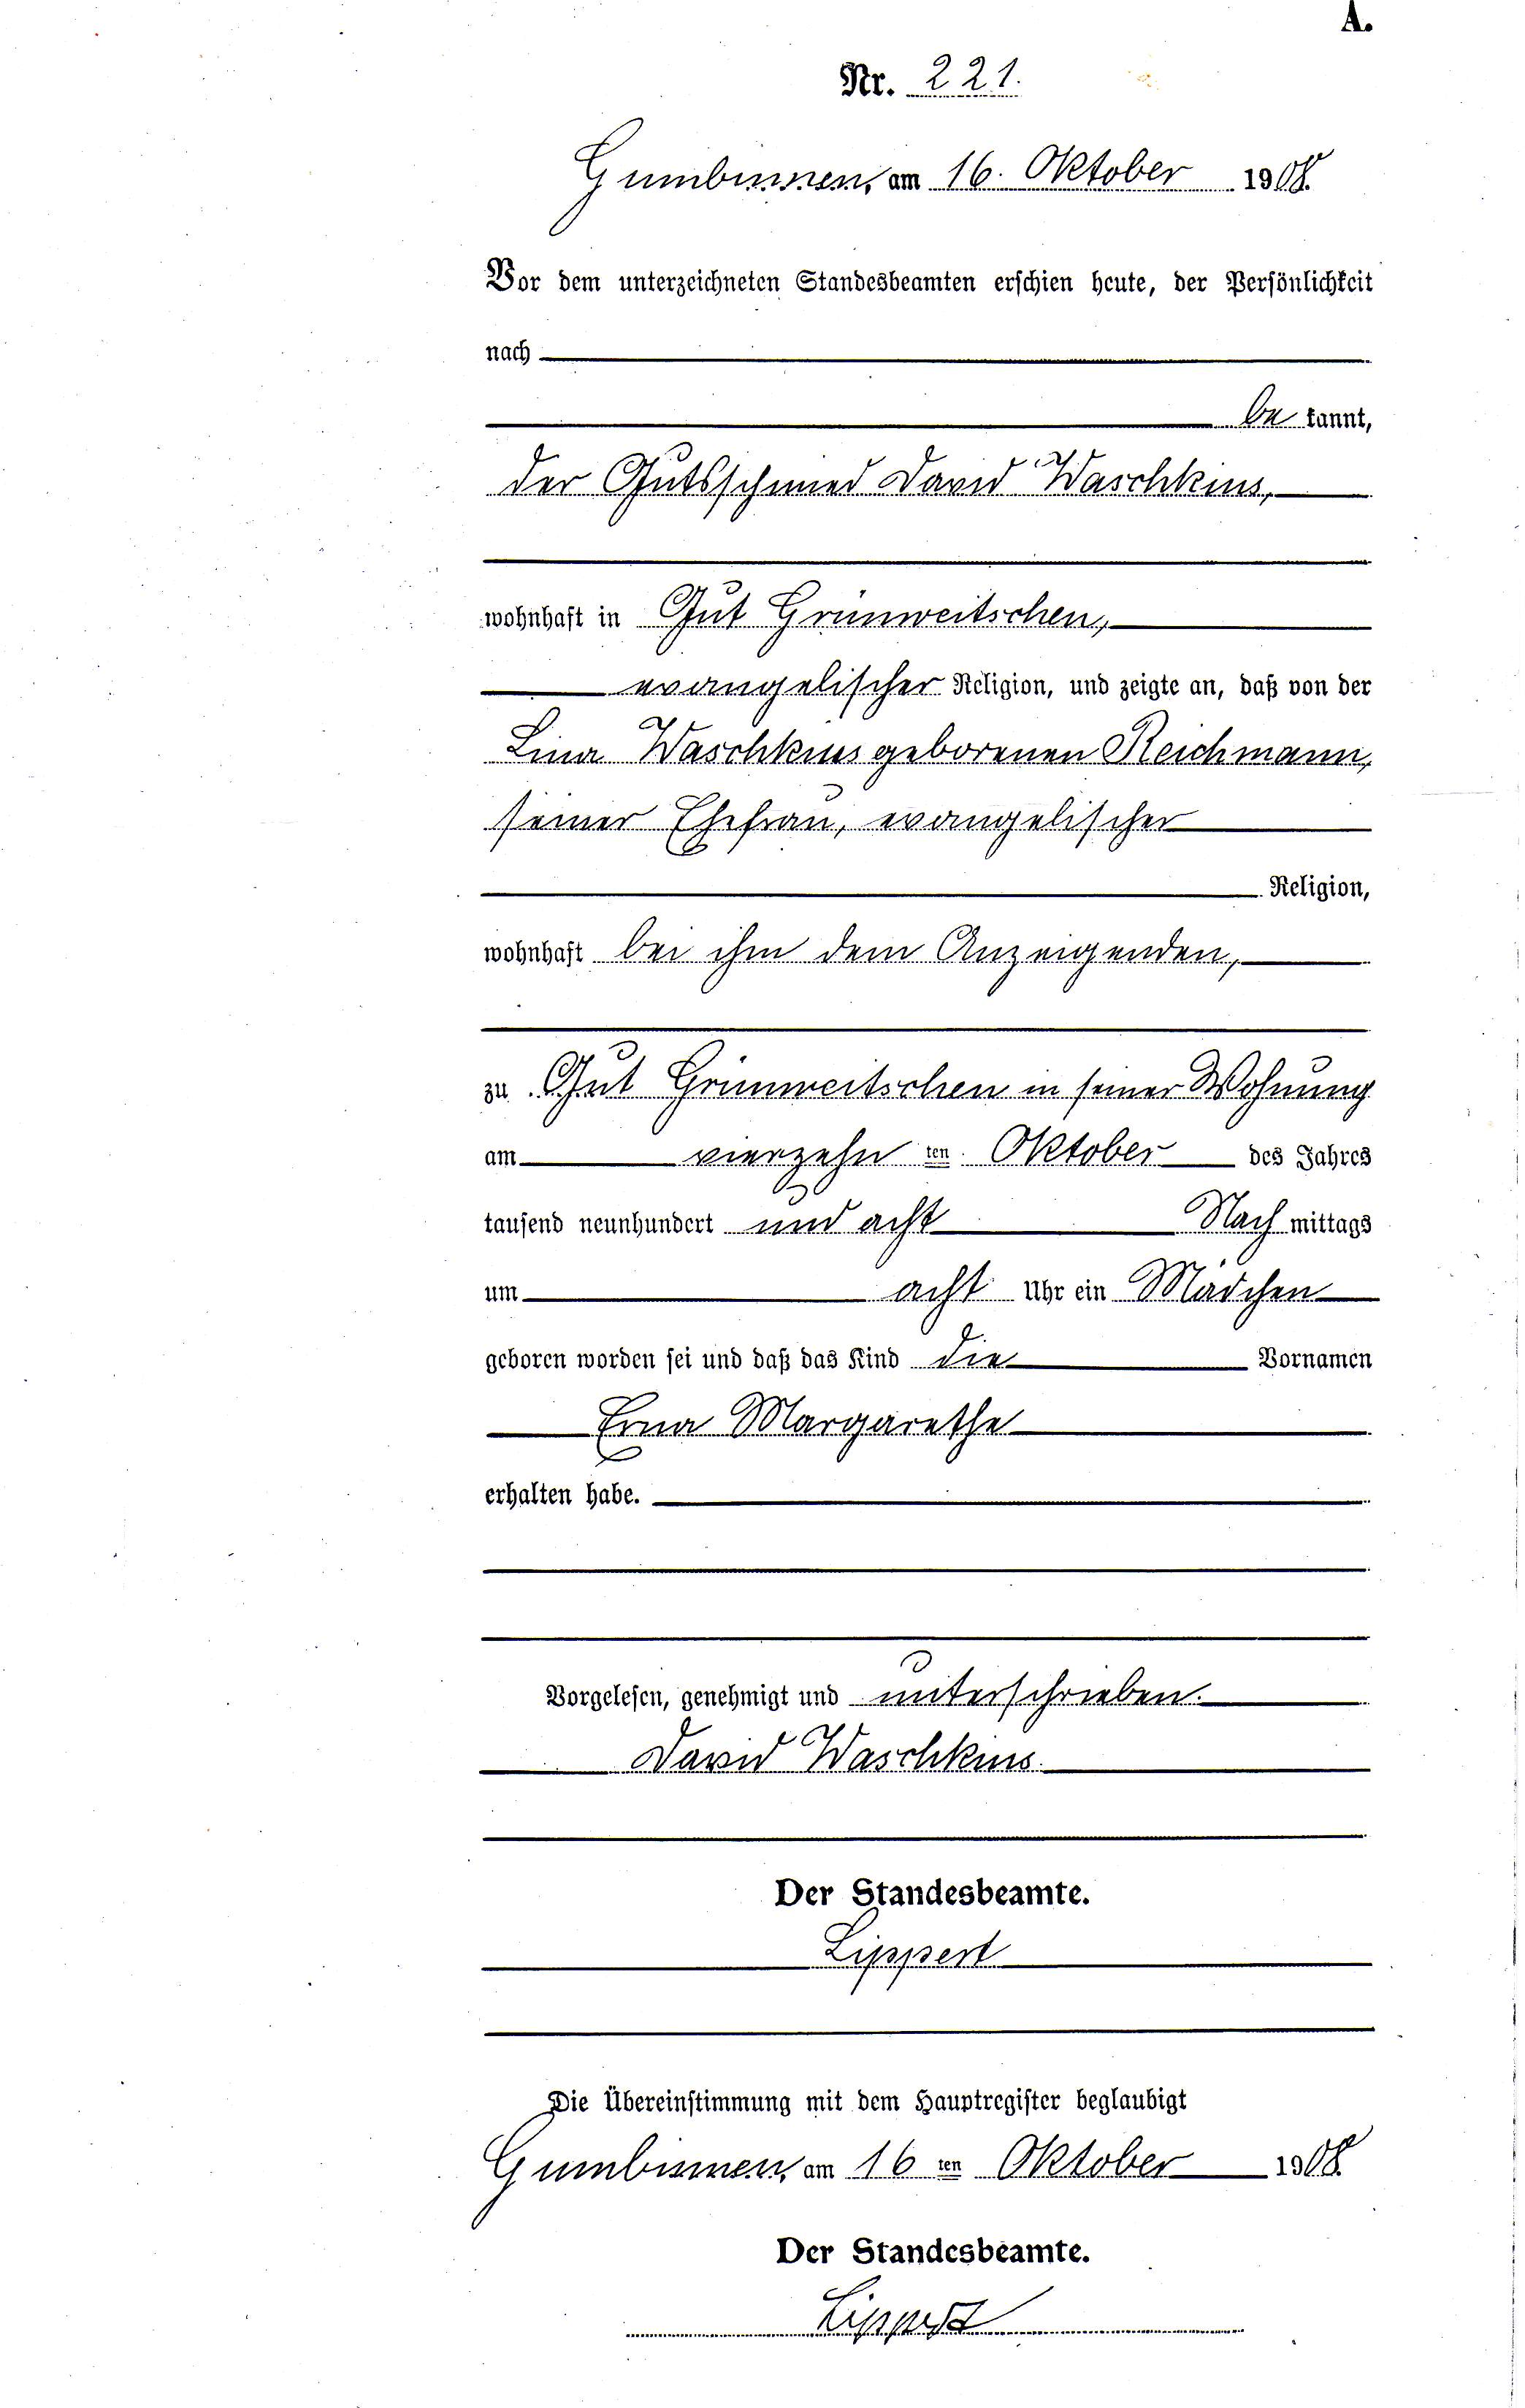 A.
Nr. 221.
Gumbinnen, am 16. Oktober 1908.
Vor dem unterzeichneten Standesbeamten erschien heute, der Persönlichkeit
nach
be kannt,
der Gutsschmied David Waschkius,
wohnhaft in Gut Grünweitschen,
evangelischer Religion, und zeigte an, daß von der
Lina Waschkius geborenen Reichmann,
seiner Ehefrau, evangelischer
Religion,
wohnhaft bei ihm dem Anzeigenden,
zu Gut Grünweitschen in seiner Wohnung
am vierzehn ten Oktober des Jahres
tausend neunhundert und acht Nach mittags
um acht Uhr ein Mädchen
geboren worden sei und daß das Kind die Vornamen
Erna Margarethe
erhalten habe.
Vorgelesen, genehmigt und unterschrieben.
David Waschkius.
Der Standesbeamte.
Lippert
Die Übereinstimmung mit dem Hauptregister beglaubigt
Gumbinnen, am 16 ten Oktober 1908.
Der Standesbeamte.
Lippert